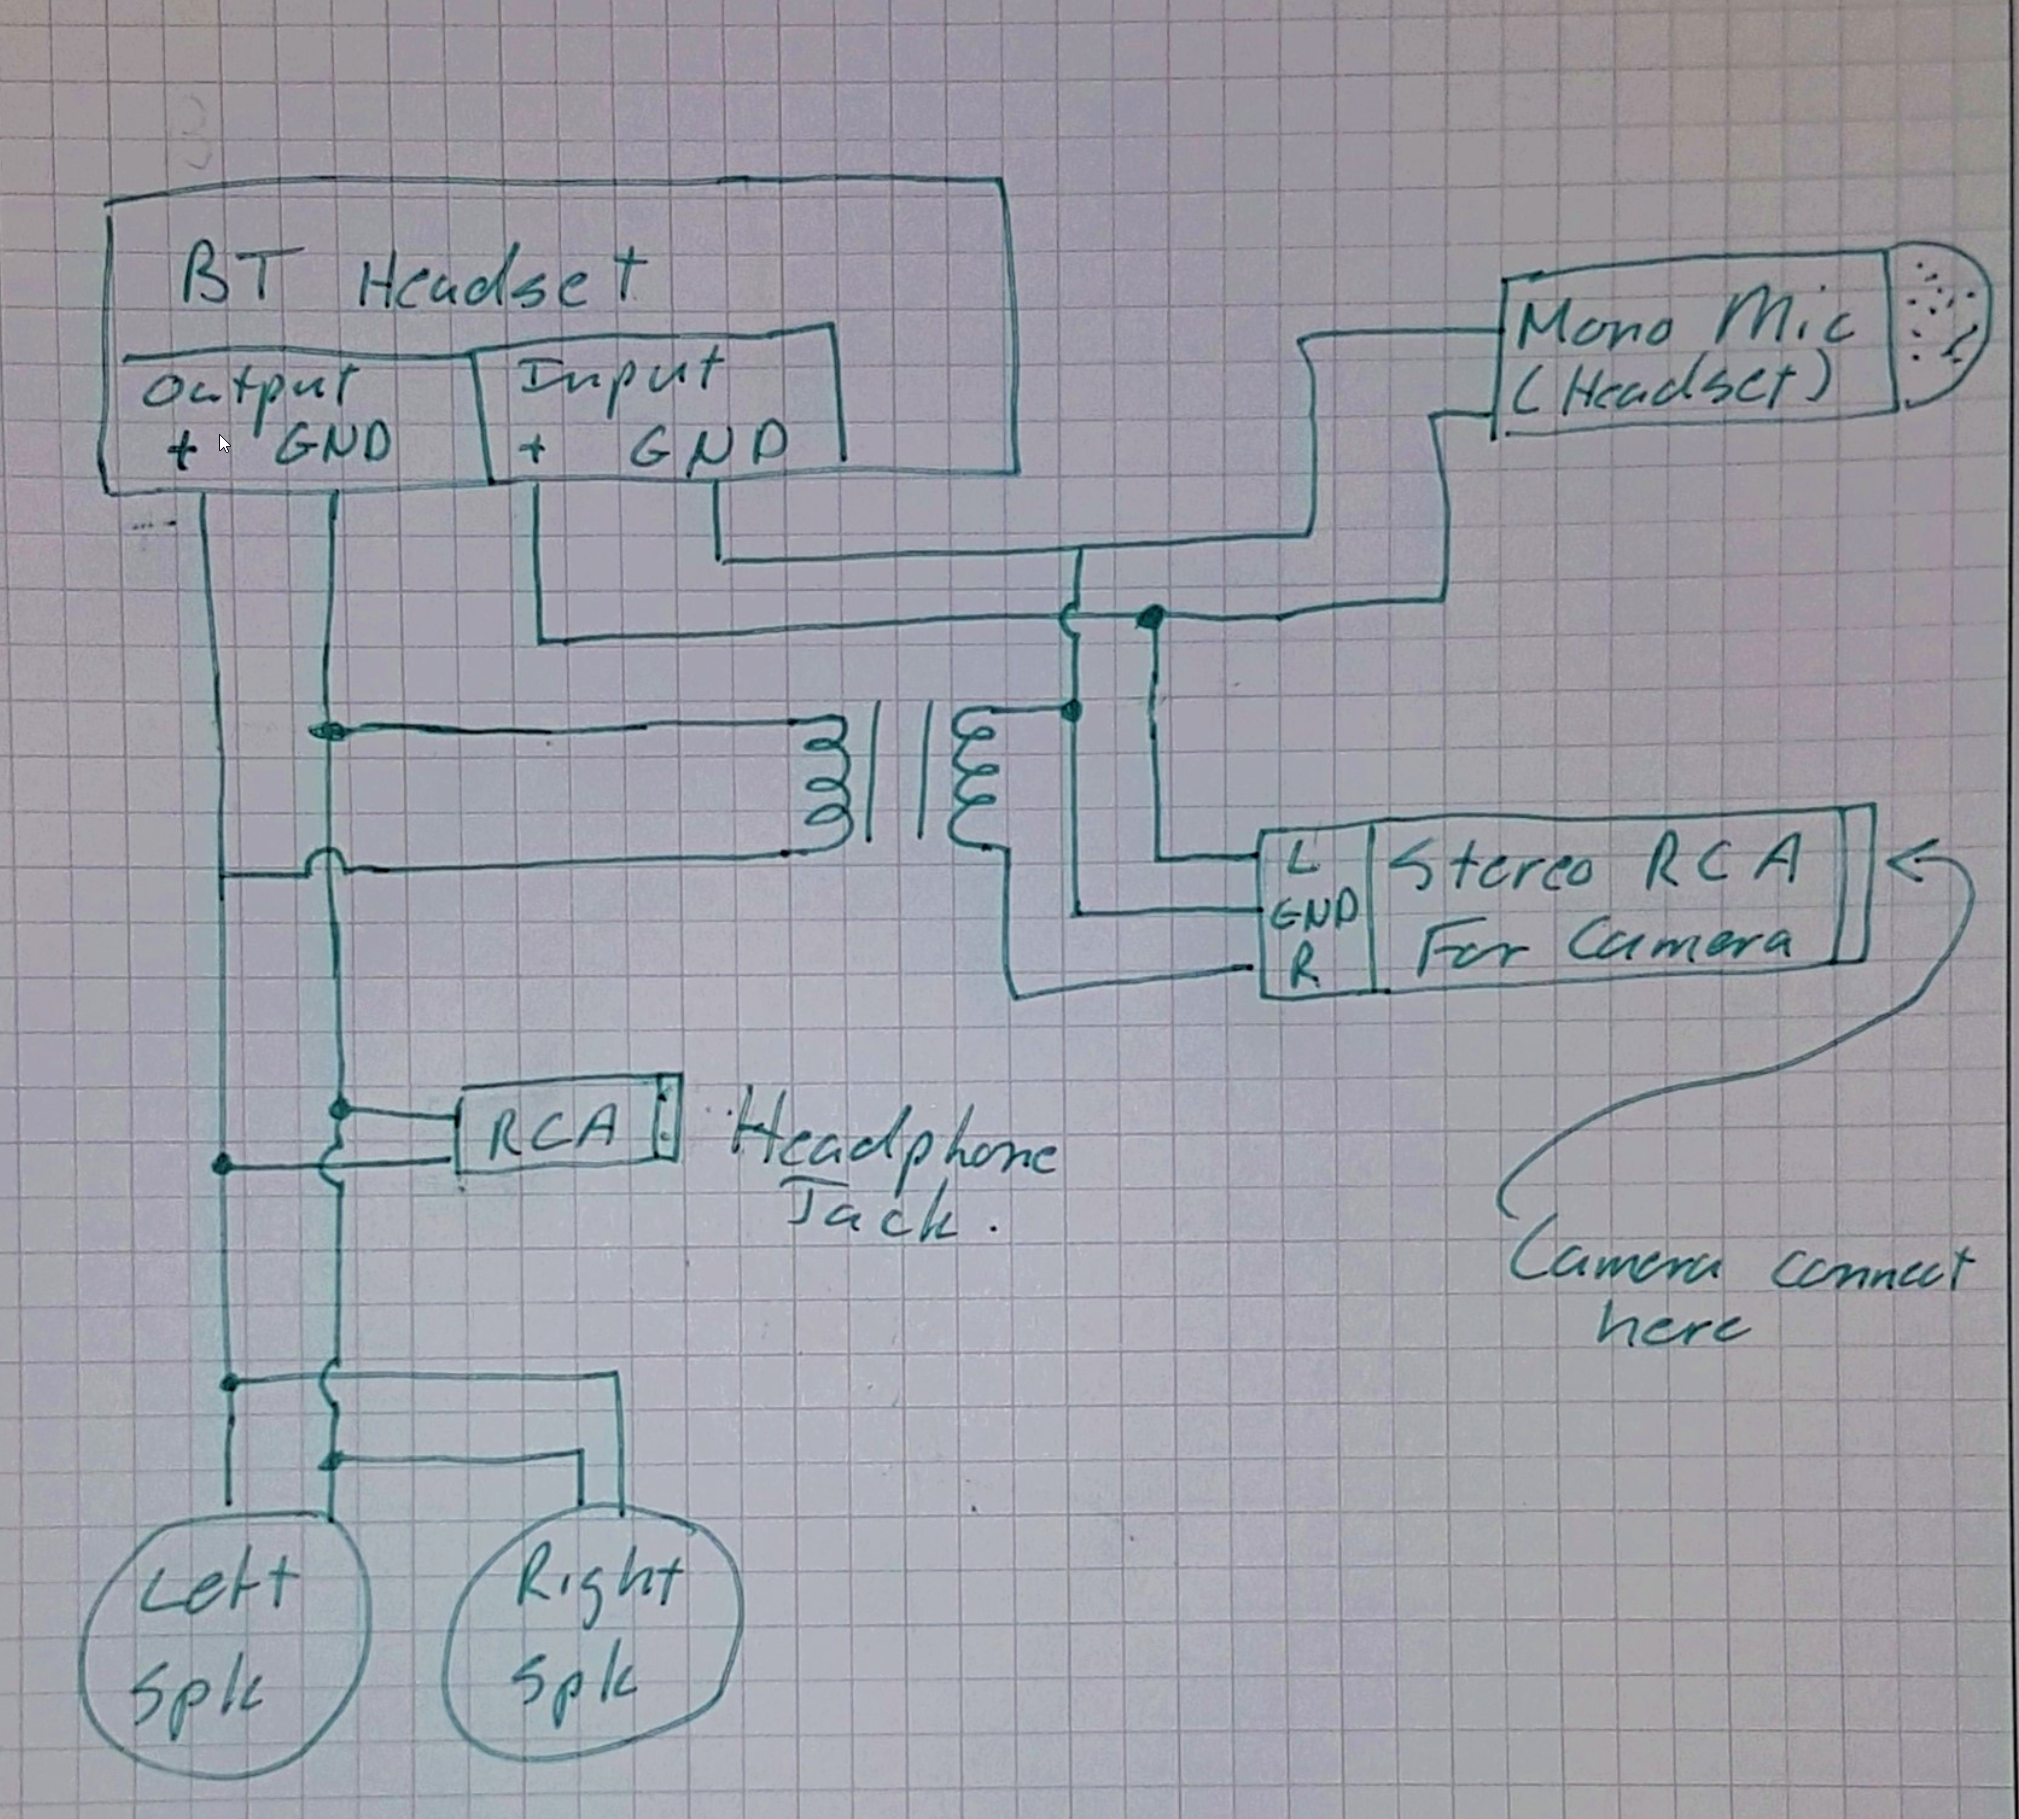 BT Headset
Output Input
+ GND + GND
Mono Mic
(Headset)
L
GND
R
Stereo RCA
For Camera
RCA
Headphone
Jack.
Camera connect
here
Left
Spk
Right
Spk